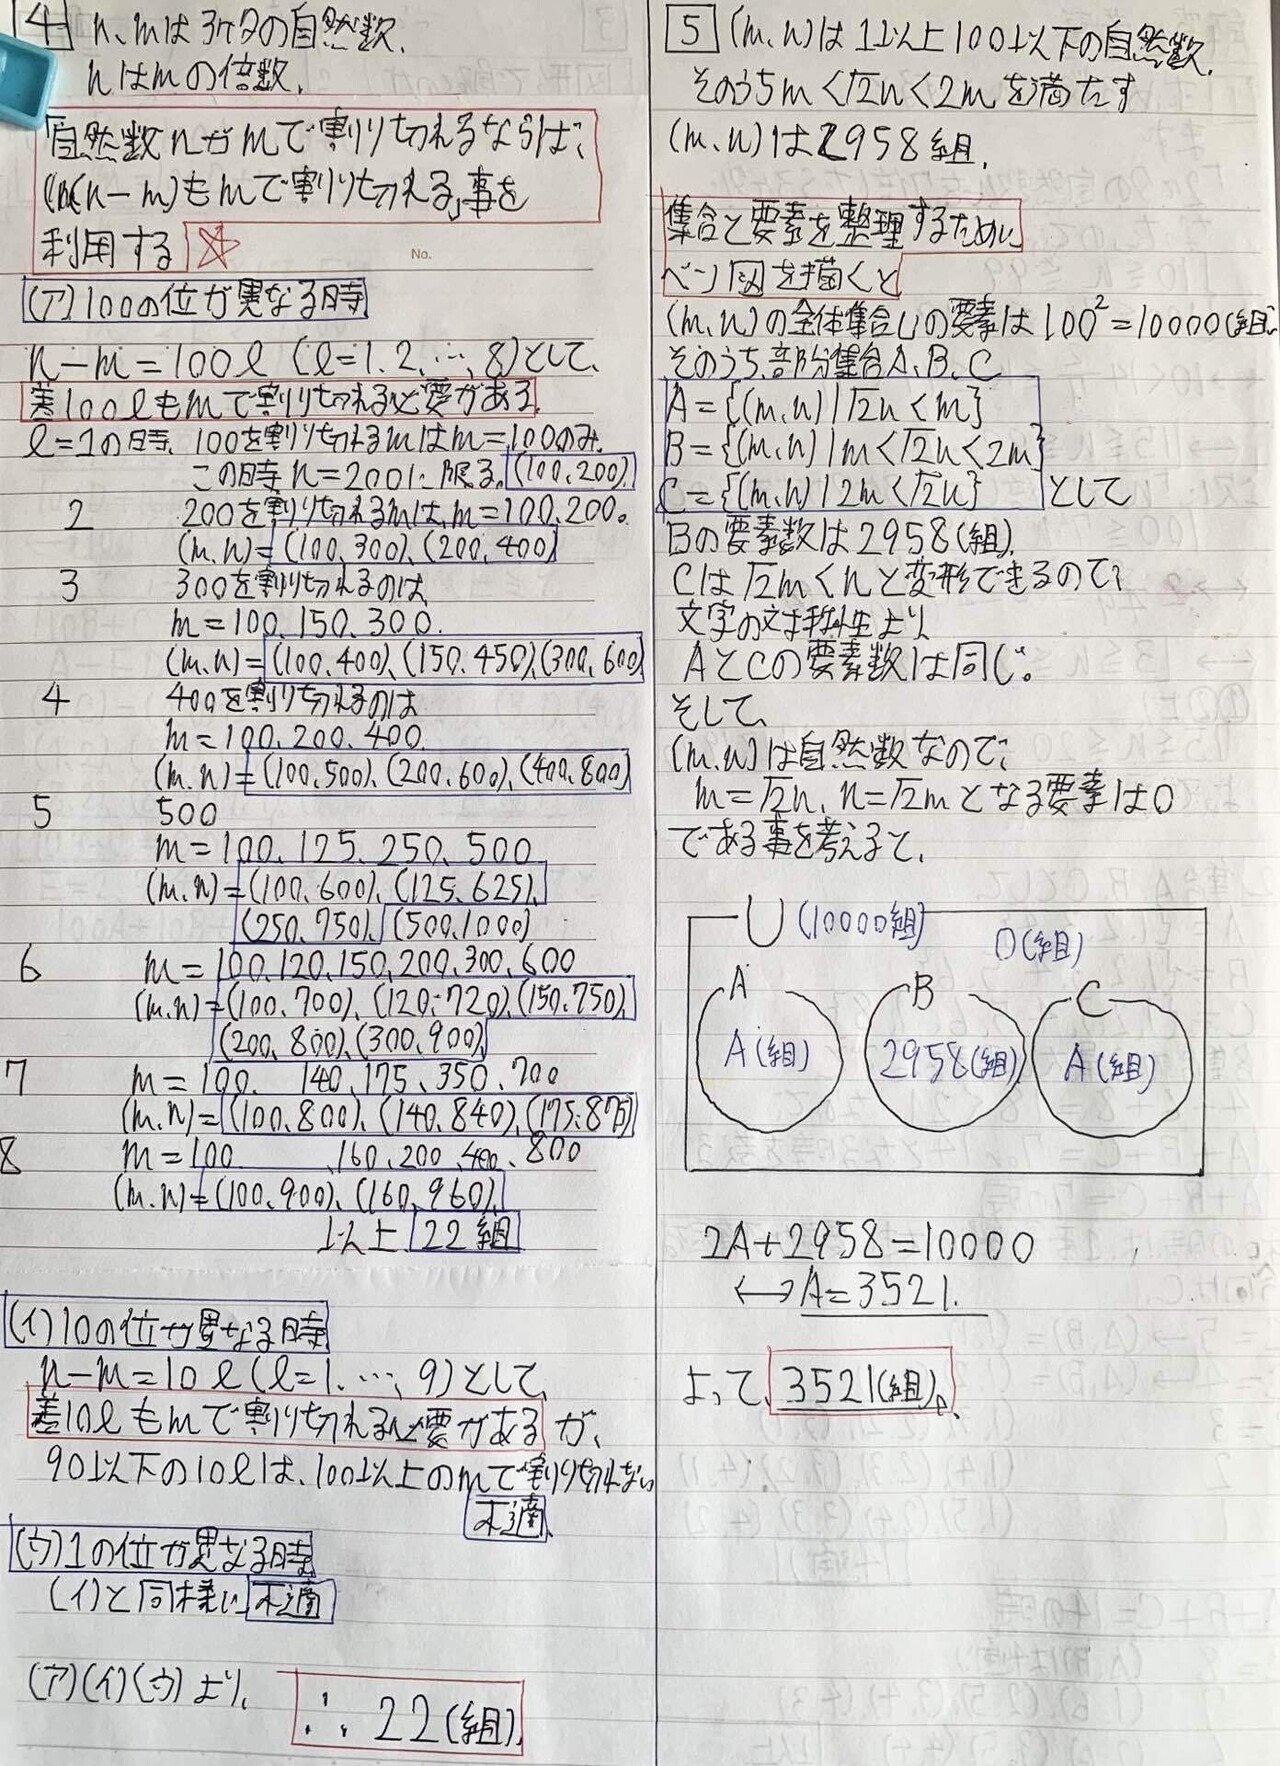 4 n、mは3ケタの自然数、
nはmの倍数、
「自然数nがmで割り切れるならば、
(n-m)もmで割り切れる」事を
利用する
No.
(ア)100の位が異なる時
n-m=100ℓ (ℓ=1.2.…,8)として、
差100ℓもmで割り切れる必要がある。
ℓ=1の時、100を割り切れるmはm=100のみ。
この時n=200に限る。(100,200)
2 200を割り切れるmは、m=100,200。
(m.n)=(100,300)、(200,400)
3 300を割り切れるのは、
m=100、150、300.
(m.n)=(100.400)、(150.450)、(300,600)
4 400を割り切れるのは
m=100.200.400.
(m.n)=(100,500)、(200,600)、(400,800)
5 500
m=100、125、250、500
(m.n)=(100,600)、(125,625)、
(250,750)、(500,1000)
6 m=100,120,150,200,300,600
(m.n)=(100,700)、(120,720)、(150,750)、
(200,800)、(300,900)
7 m=100. 140、175、350、700
(m.n)=(100,800)、(140,840)、(175.875)
8 m=100 、160、200、400、800
(m.n)=(100,900)、(160,960)、
以上、22組
(イ)10の位が異なる時
n-m=10ℓ(ℓ=1.…,9)として、
差10ℓもmで割り切れる必要があるが、
90以下の10ℓは、100以上のmで割り切れない
不適、
(ウ)1の位が異なる時
(イ)と同様に不適
(ア)(イ)(ウ)より、
∴ 22(組)
5 (m、n)は1以上100以下の自然数、
そのうちm<√2n<2mを満たす
(m、n)は2958組、
集合と要素を整理するために
ベン図を描くと
(m、n)の全体集合Uの要素は100²=10000(組)、
そのうち、部分集合A、B、C
A={(m,n)|√2n<m}
B={(m,n)|m<√2n<2m}
C={(m,n)|2m<√2n}として
Bの要素数は2958(組)、
Cは√2m<nと変形できるので、
文字の対称性より、
AとCの要素数は同じ。
そして、
(m.n)は自然数なので、
m=√2n、n=√2mとなる要素は0
である事を考えると、
U(10000組)
0(組)
A B C
A(組) 2958(組) A(組)
2A+2958=10000
↔A=3521.
よって、3521(組)。